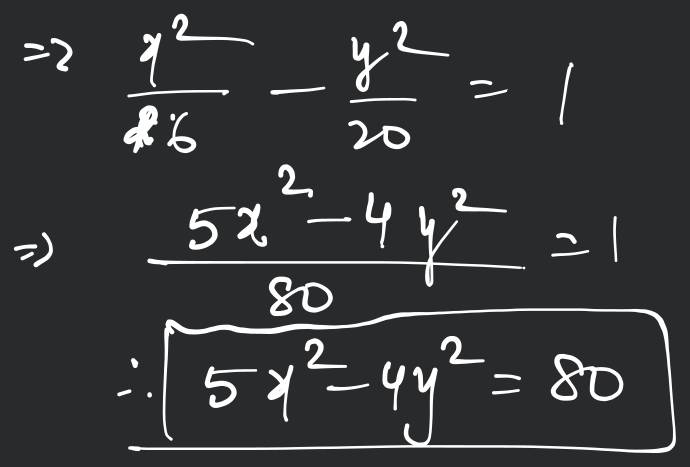 => x²/16 - y²/20 = 1
=> 5x² - 4y²/80 = 1
∴ 5x² - 4y² = 80